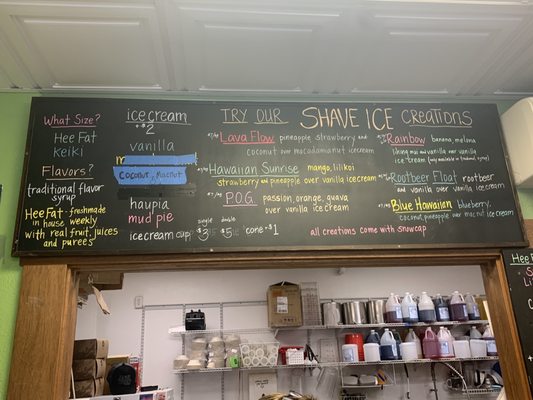 What Size?
Hee Fat
Keiki
Flavors?
traditional flavor
syrup
Hee Fat - freshmade
in house weekly
with real fruit, juices
and purees
ice cream
+$2
vanilla
Coconut, Macnut
haupia
mud pie
icecream cup: single $3 double $5 cone +$1
TRY OUR SHAVE ICE Creations
Lava Flow pineapple, strawberry and
coconut over macadamia nut icecream
Hawaiian Sunrise mango, lilikoi
strawberry and pineapple over vanilla icecream
P.O.G. passion, orange, guava
over vanilla icecream
Rainbow banana, melona
over vanilla
icecream
Rootbeer Float rootbeer
and vanilla over vanilla icecream
Blue Hawaiian blueberry,
coconut, pineapple over macnut icecream
all creations come with snowcap